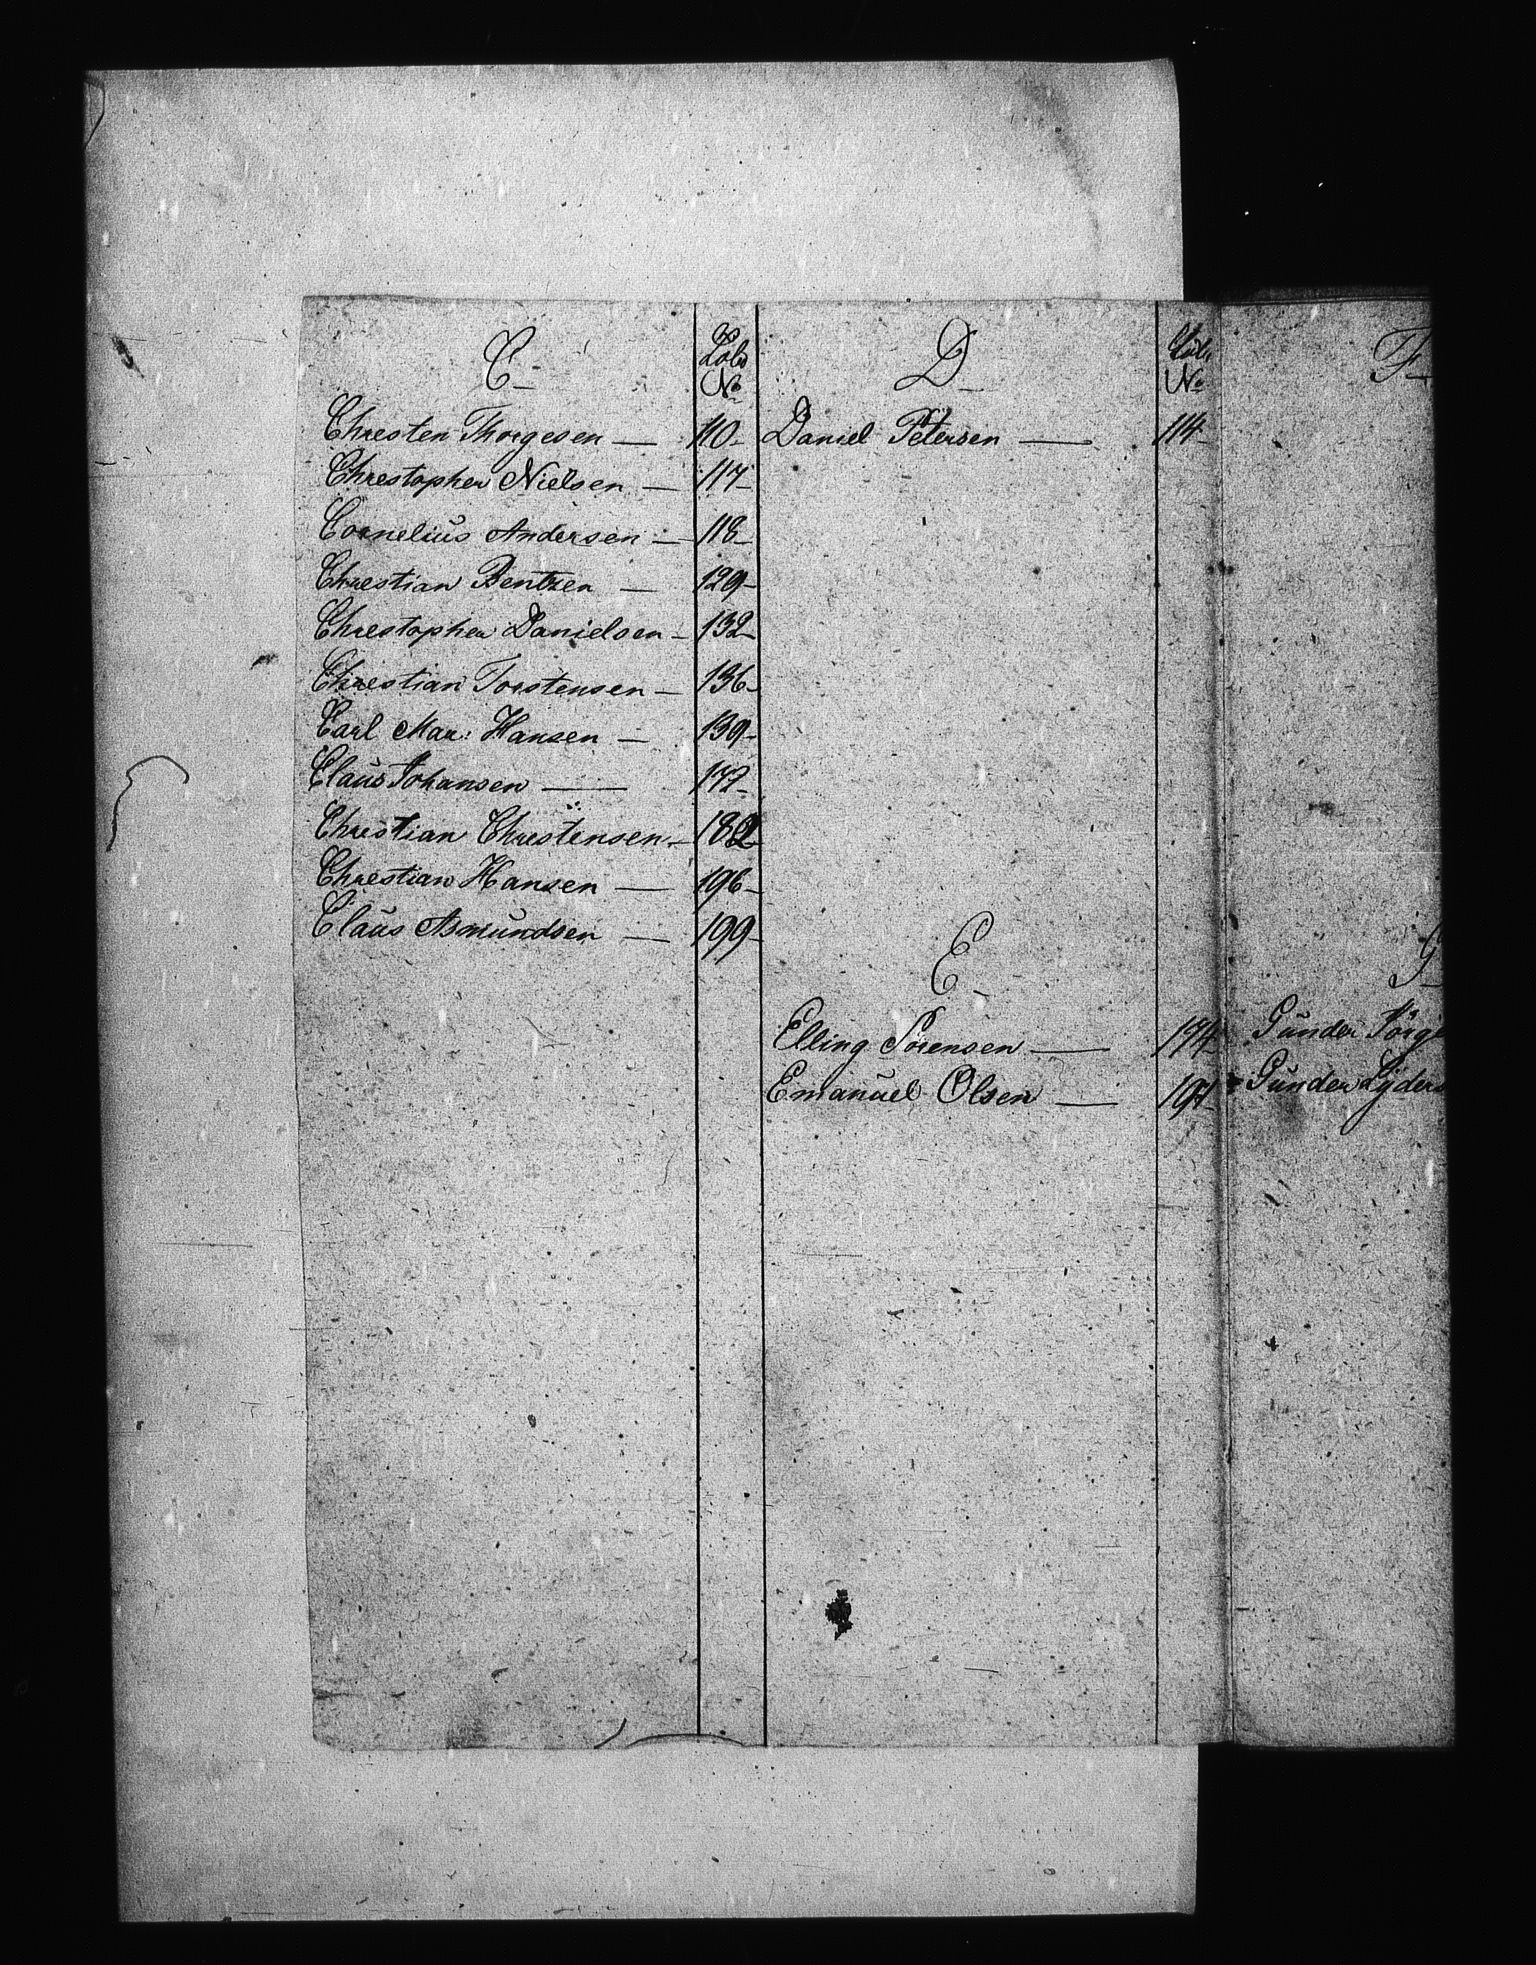 C
Löbe
No
Christen Thorgesen — 110
Christopher Nielsen — 117
Cornelius Andersen — 118
Christian Bentzen — 129
Christopher Danielsen — 132
Christian Torstensen — 136
Carl Max: Hansen — 139
Claus Johansen — 172
Christian Christensen — 182
Christian Hansen — 196
Claus Asmundsen — 199
D
Löb.
No
Daniel Petersen — 114
E
Elling Sörensen — 174
Emanuel Olsen — 197
F
G
Gunder Jörge
Gunder Lÿders